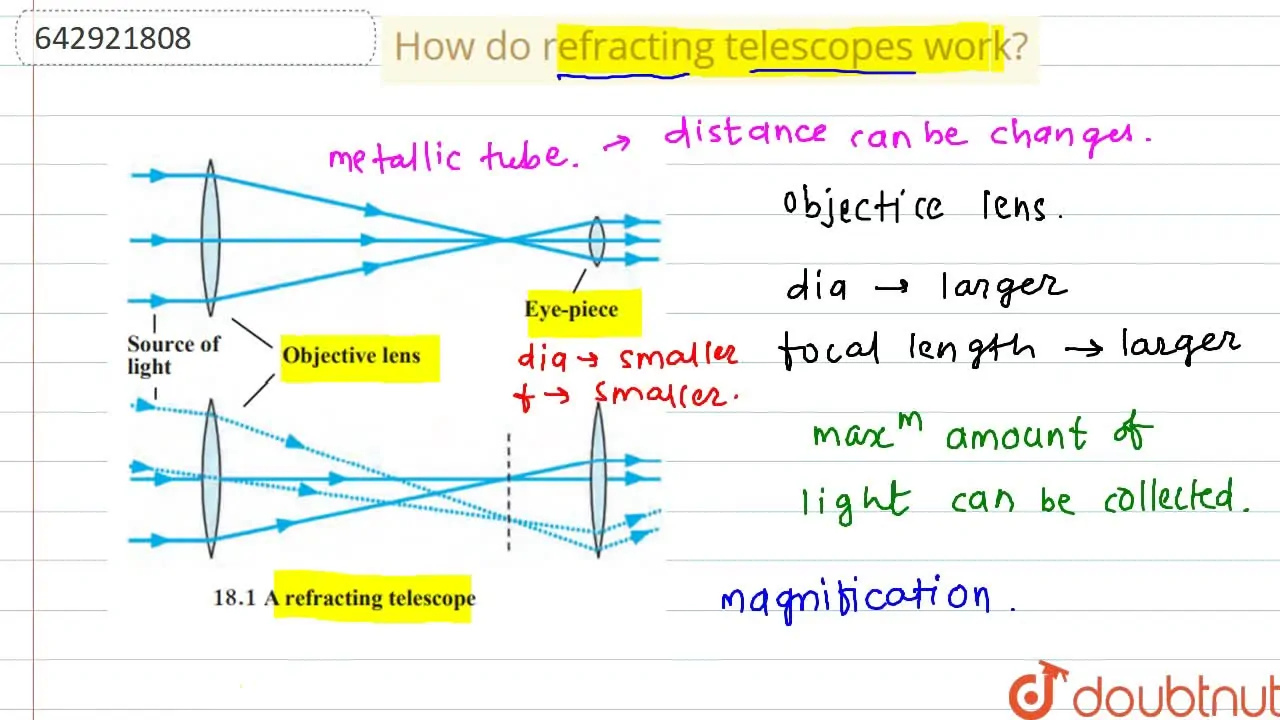 642921808
How do refracting telescopes work?
metallic tube. → distance can be changes.
Objective lens.
dia → larger
focal length → larger
Eye-piece
Source of
light
Objective lens
dia → smaller
f → smaller.
maxᵐ amount of
light can be collected.
18.1 A refracting telescope
magnification.
doubtnut